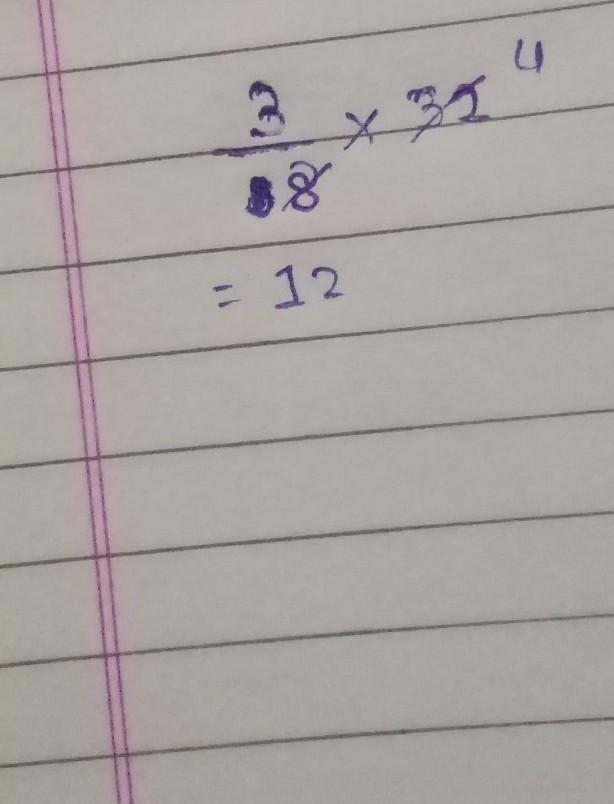 3/8 × 32 4
= 12